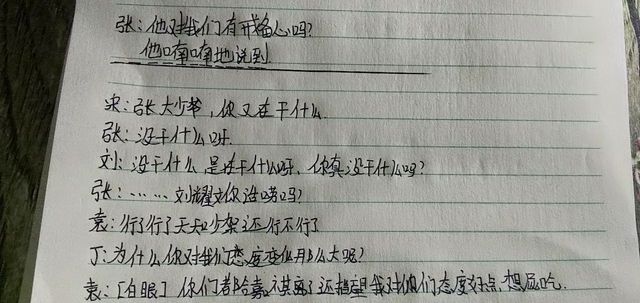 张：他对我们有戒备心吗？
他喃喃地说到
宋：张大少爷，你又在干什么
张：没干什么呀
刘：没干什么是在干什么呀，你真没干什么吗？
张：……刘耀文你油嘴吗？
袁：行了行了天天吵架还行不行了
丁：为什么你对我们态度变化那么大呢？
袁：[白眼]你们都陪嘉祺离了还指望我对你们态度好点，想屁吃